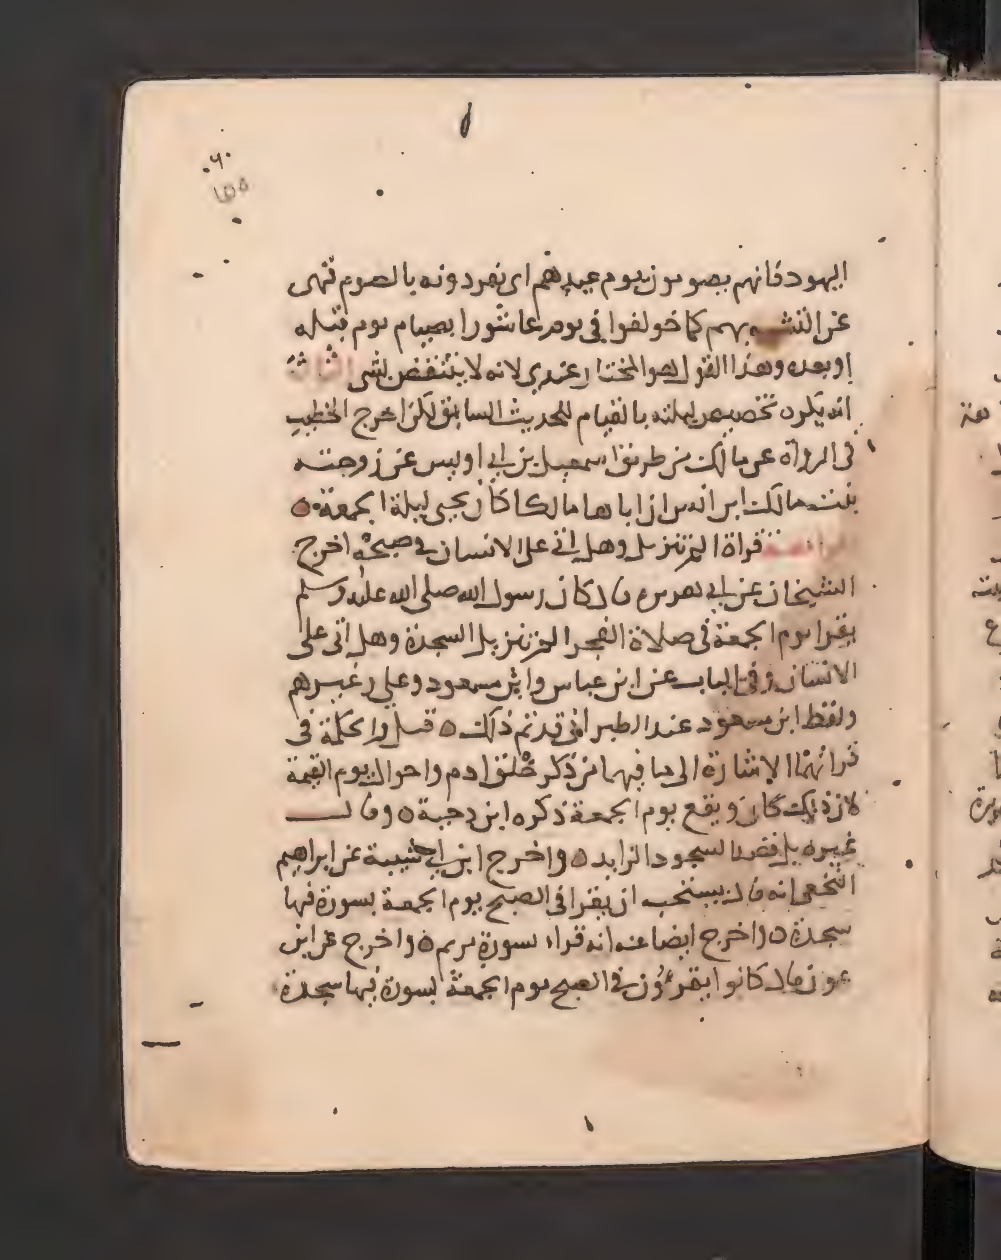 اليهود فانهم يصومون يوم عيدهم اى يفردونه بالصوم فنهى
عن التشبه بهم كما خولفوا فى يوم عاشورا بصيام يوم قبله
او بعده وهذا القول هو المختار عندى لانه لا ينتقض بشى الثالثة
انه يكره تخصيص ليلته بالقيام للحديث السابق لكن اخرج الخطيب
فى الرواة عن مالك من طريق اسمعيل بن ابى اويس عن زوجته
بنت مالك ابن انس ان اباها مالكا كان يحيى ليلة الجمعة ٥
الرابعة قراة الم تنزيل وهل اتى على الانسان فى صبحه اخرج
الشيخان عن ابى هريره قال كان رسول الله صلى الله عليه وسلم
يقرا يوم الجمعة فى صلاة الفجر الم تنزيل السجدة وهل اتى على
الانسان وفى الباب عن ابن عباس وابن مسعود وعلى وغيرهم
ولفظ ابن مسعود عند الطبرانى يديم ذلك ٥ قيل والحكمة فى
قراتهما الاشارة الى ما فيهما من ذكر خلق ادم واحوال يوم القيمة
لان ذلك كان ويقع يوم الجمعة ذكره ابن دحية ٥ وقال
غيره بل قصد السجود الزايد ٥ واخرج ابن ابى شيبة عن ابراهيم
النخعى انه قال يستحب ان يقرا فى الصبح يوم الجمعة بسورة فيها
سجدة ٥ واخرج ايضا عنه انه قراء سورة مريم ٥ واخرج عن ابن
عون قال كانوا يقرءون فى الصبح يوم الجمعة بسورة فيها سجدة